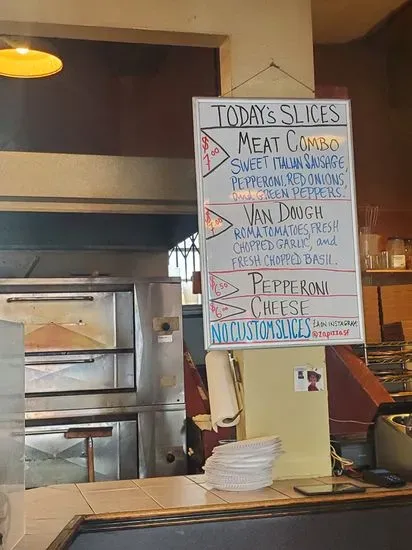 TODAY'S SLICES
$7.00 MEAT COMBO
SWEET ITALIAN SAUSAGE,
PEPPERONI, RED ONIONS,
and GREEN PEPPERS.
VAN DOUGH
ROMA TOMATOES, FRESH
CHOPPED GARLIC, and
FRESH CHOPPED BASIL.
$6.50 PEPPERONI
$6.00 CHEESE
NO CUSTOM SLICES
ZA ON INSTAGRAM
@ZAPIZZASF